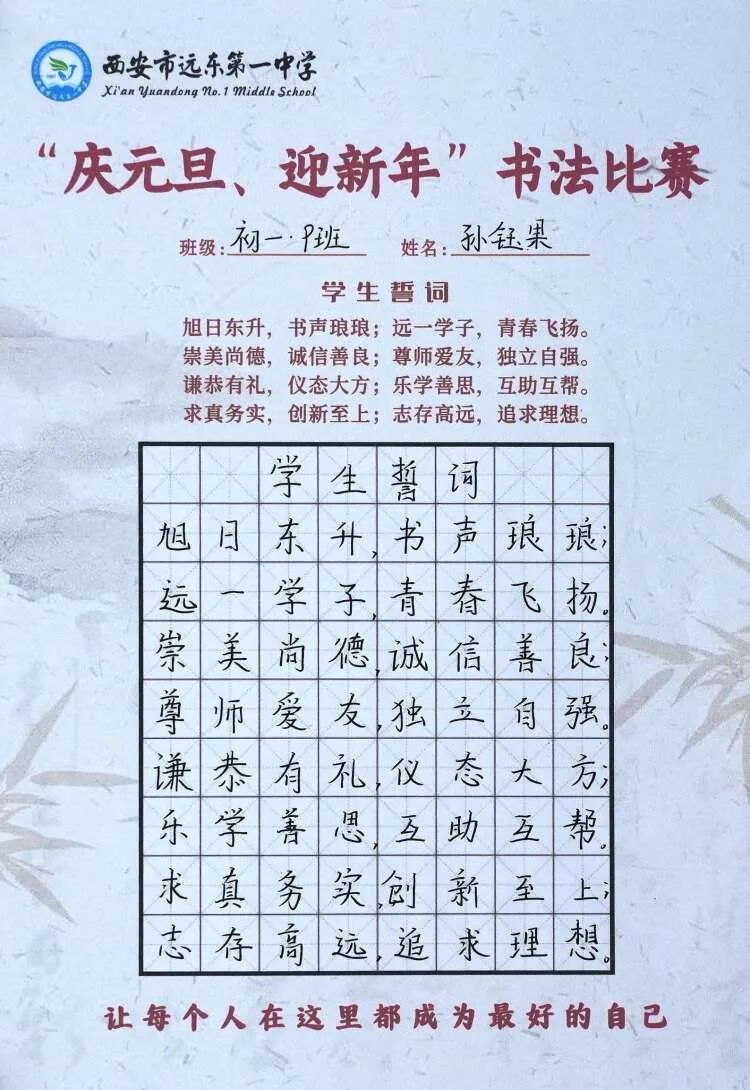 西安市远东第一中学
Xi'an Yuandong No.1 Middle School
“庆元旦、迎新年”书法比赛
班级：初一·9班 姓名：孙钰果
学生誓词
旭日东升，书声琅琅；远一学子，青春飞扬。
崇美尚德，诚信善良；尊师爱友，独立自强。
谦恭有礼，仪态大方；乐学善思，互助互帮。
求真务实，创新至上；志存高远，追求理想。
学生誓词
旭日东升，书声琅琅；
远一学子，青春飞扬。
崇美尚德，诚信善良；
尊师爱友，独立自强。
谦恭有礼，仪态大方；
乐学善思，互助互帮。
求真务实，创新至上；
志存高远，追求理想。
让每个人在这里都成为最好的自己